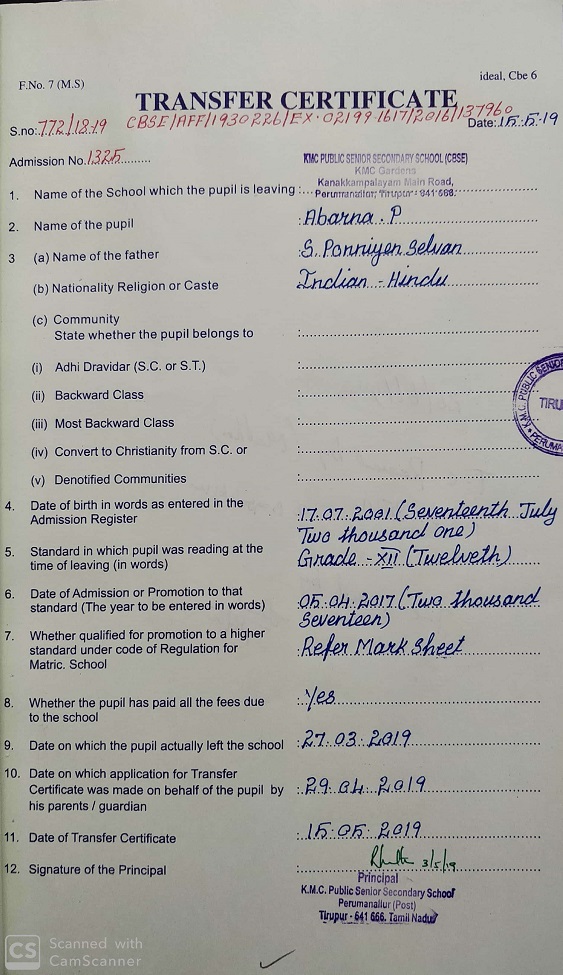 F.No. 7 (M.S)
ideal, Cbe 6
TRANSFER CERTIFICATE
S.no: 772/18-19 CBSE/AFF/1930226/EX-02199-1617/2016/137960 Date: 15.5.19
Admission No. 1325
KMC PUBLIC SENIOR SECONDARY SCHOOL (CBSE)
KMC Gardens
Kanakkampalayam Main Road,
Perumanallur, Tirupur - 641 666.
1. Name of the School which the pupil is leaving :
2. Name of the pupil : Abarna. P
3 (a) Name of the father : S. Ponniyen Selvan
(b) Nationality Religion or Caste Indian - Hindu
(c) Community
State whether the pupil belongs to :
(i) Adhi Dravidar (S.C. or S.T.) :
(ii) Backward Class :
(iii) Most Backward Class :
(iv) Convert to Christianity from S.C. or :
(v) Denotified Communities :
K.M.C. PUBLIC SENIOR
TIRU
PERUMA
4. Date of birth in words as entered in the
Admission Register : 17.07.2001 (Seventeenth July
Two thousand one)
5. Standard in which pupil was reading at the
time of leaving (in words) Grade - XII (Twelveth)
6. Date of Admission or Promotion to that
standard (The year to be entered in words) : 05.04.2017 (Two thousand
Seventeen)
7. Whether qualified for promotion to a higher
standard under code of Regulation for : Refer Mark Sheet
Matric. School
8. Whether the pupil has paid all the fees due : Yes
to the school
9. Date on which the pupil actually left the school : 27.03.2019
10. Date on which application for Transfer
Certificate was made on behalf of the pupil by : 29.04.2019
his parents / guardian
11. Date of Transfer Certificate : 15.05.2019
12. Signature of the Principal : 3/5/19
Principal
K.M.C. Public Senior Secondary School
Perumanallur (Post)
Tirupur - 641 666. Tamil Nadu
CS Scanned with
CamScanner